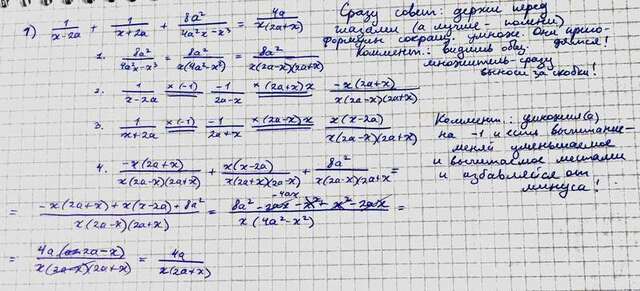 1) 1/(x-2a) + 1/(x+2a) + 8a²/(4a²x-x³) = 4a/(x(2a+x))
Сразу совет: держи перед
глазами (а лучше - помни)
формулы сокращ. умнож. Они пригодятся!
1. 8a²/(4a²x-x³) = 8a²/(x(4a²-x²)) = 8a²/(x(2a-x)(2a+x))
Коммент.: видишь общ.
множитель-сразу
выноси за скобки!
2. 1/(x-2a) ×(-1) -1/(2a-x) ×(2a+x)x -x(2a+x)/(x(2a-x)(2a+x))
3. 1/(x+2a) ×(-1) -1/(2a+x) ×(2a-x)x x(x-2a)/(x(2a-x)(2a+x))
Коммент.: умножил(а)
на -1 и есть вычитание-
меняй уменьшаемое
и вычитаемое местами
и избавляйся от
минуса!
4. -x(2a+x)/(x(2a-x)(2a+x)) + x(x-2a)/(x(2a+x)(2a-x)) + 8a²/(x(2a-x)(2a+x)) =
= (-x(2a+x)+x(x-2a)+8a²)/(x(2a-x)(2a+x)) = (8a²-2ax-x²+x²-2ax)/(x(4a²-x²)) =
-4ax
= 4a(2a-x)/(x(2a-x)(2a+x)) = 4a/(x(2a+x))